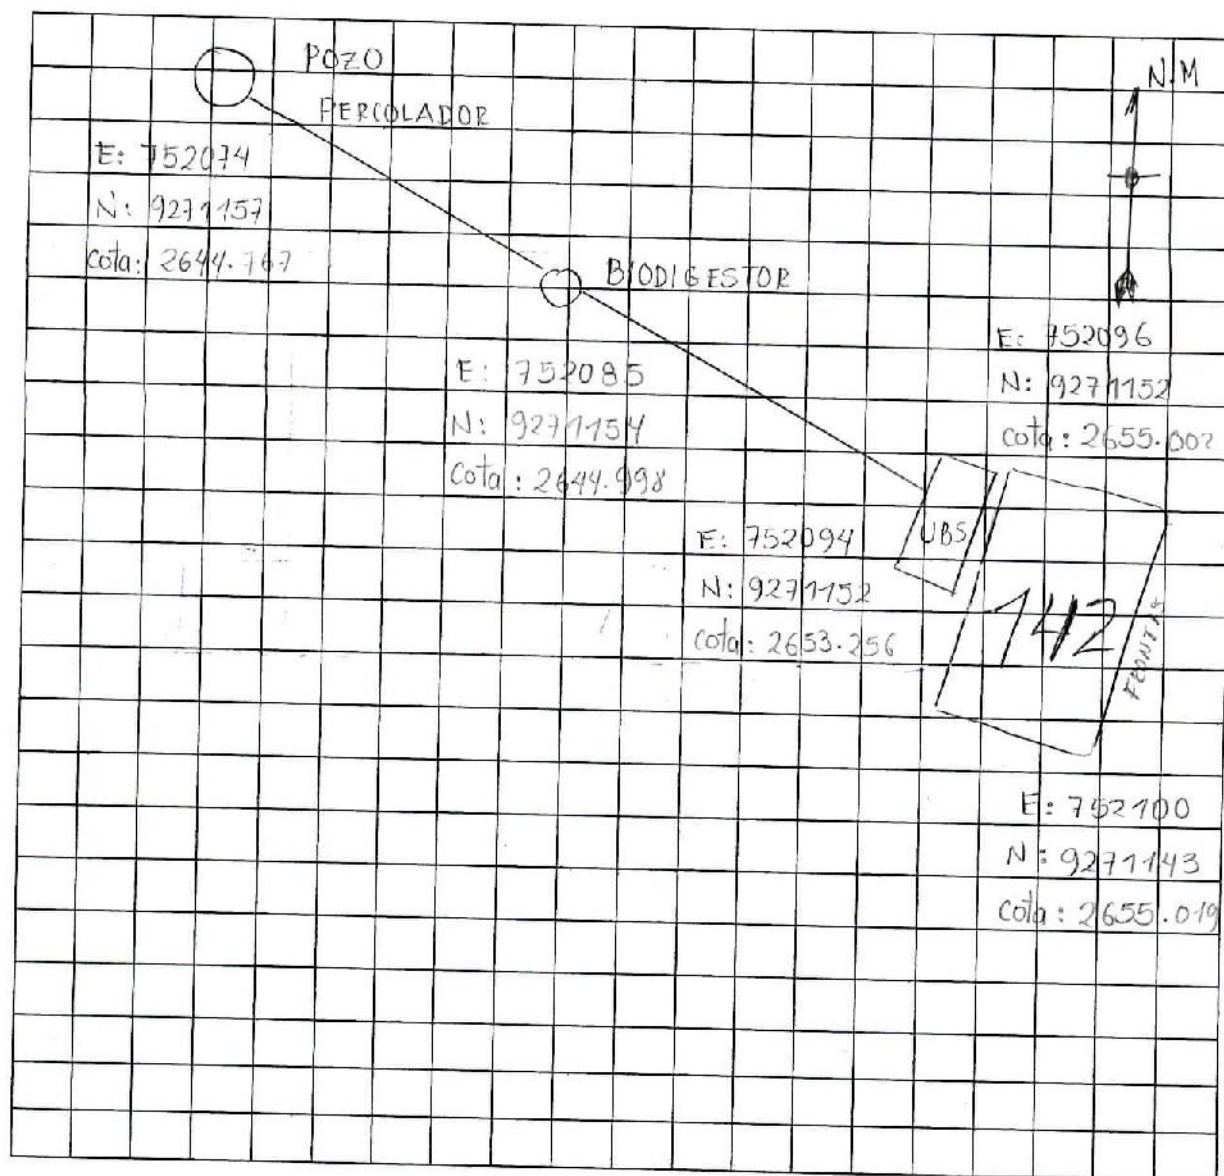 POZO
PERCOLADOR
E: 752074
N: 9271157
cota: 2644.767
N.M
BIODIGESTOR
E: 752085
N: 9271154
cota: 2644.998
E: 752096
N: 9271152
cota: 2655.002
UBS
E: 752094
N: 9271152
cota: 2653.256
142
E: 752100
N: 9271143
cota: 2655.019